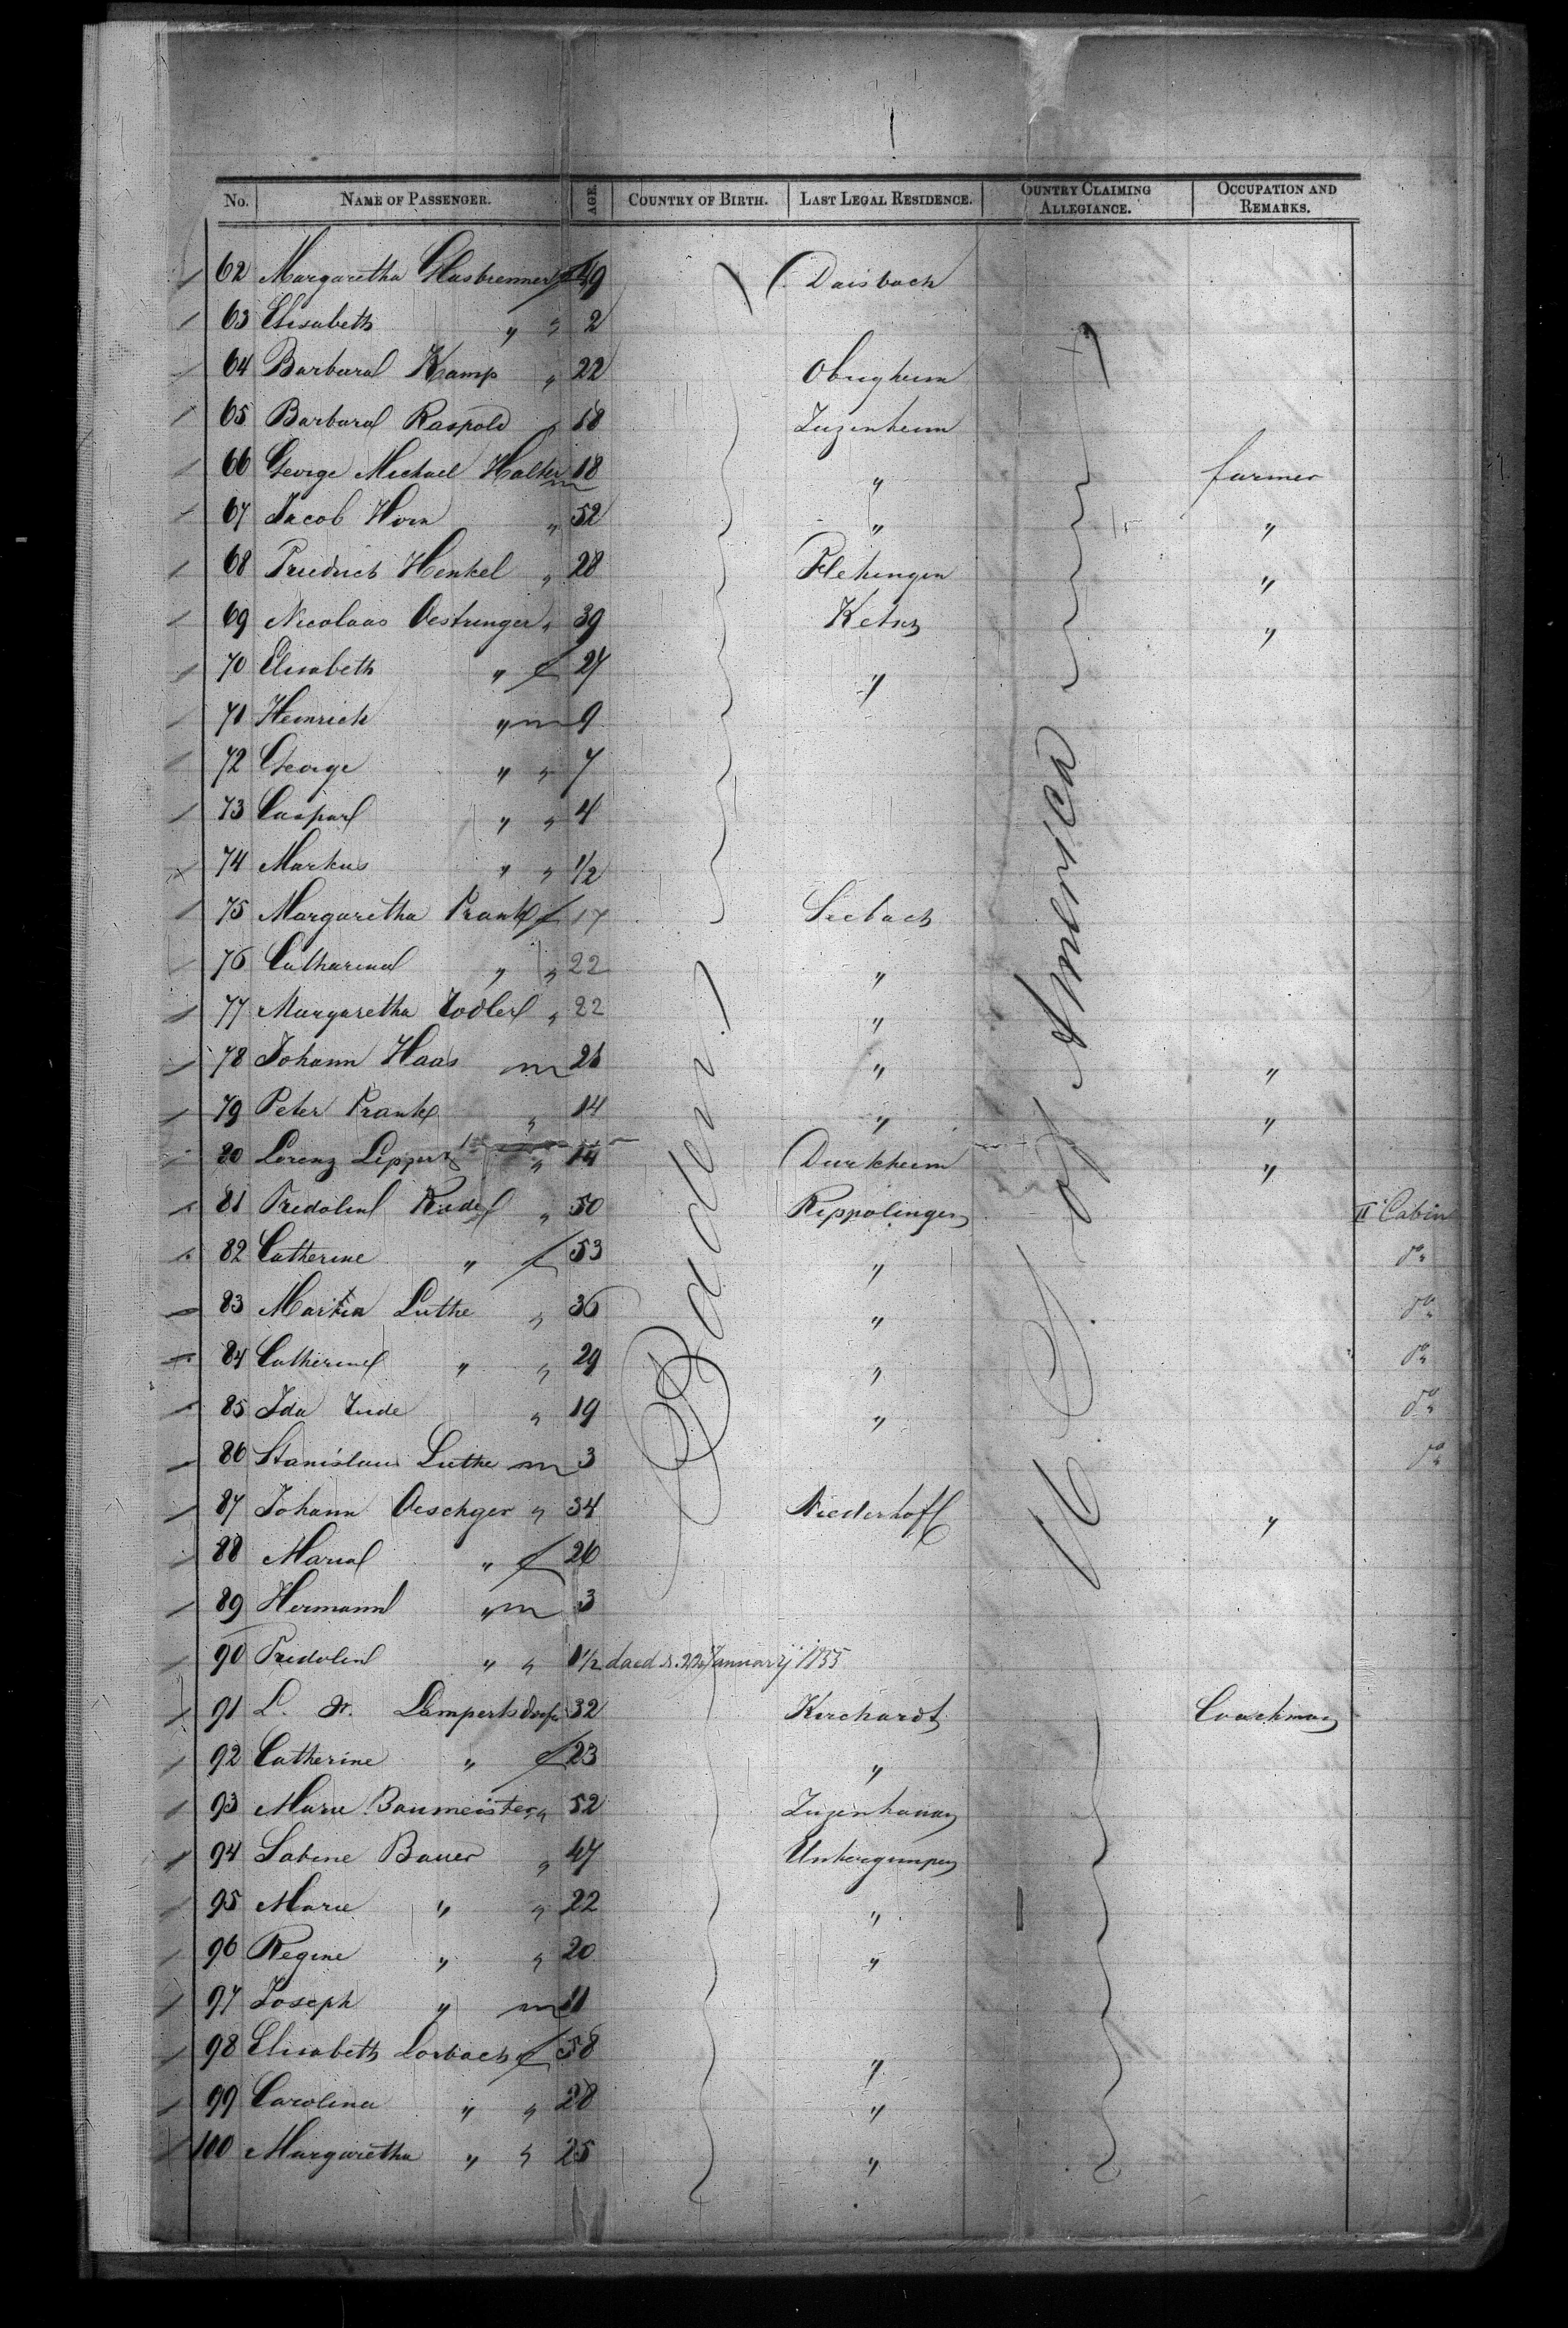 No. NAME OF PASSENGER. AGE. COUNTRY OF BIRTH. LAST LEGAL RESIDENCE. OUNTRY CLAIMING ALLEGIANCE. OCCUPATION AND REMARKS.
62 Margaretha Glasbrenner f 49 Daisbach
63 Elisabeth " " 2
64 Barbara Kamp " 22 Obrigheim
65 Barbara Raspold " 18 Zuzenheim
66 George Michael Halter m 18 " farmer
67 Jacob Horn " 52 " "
68 Friedrich Henkel " 28 Flehingen "
69 Nicolaas Oestringer " 39 Ketsch "
70 Elisabeth " f 27 "
71 Heinrich " m 9
72 George " " 7
73 Caspar " " 4
74 Markus " " 1/2
75 Margaretha Frank f 17 Seebach
76 Catharina " " 22 "
77 Margaretha " 22 "
78 Johann Haas m 26 " "
79 Peter Frank " 14 " "
80 Lorenz Lippert " 14 Durkheim "
81 Fridolin " 50 Rippolingen II Cabin
82 Catherine " f 53 " do
83 Luthe " 36 " do
84 Catherine " " 29 " do
85 Ida " 19 " do
86 Stanislaus Luthe m 3 do
87 Johann Oeschger " 34 Niederhoff "
88 Maria " f 26
89 Hermann " m 3
90 Fridolin " " 1 1/2 January 1855
91 L. Lampertsdorfer 32 Kirchardt Coachman
92 Catherine " f 23 "
93 Marie Baumeister " 52
94 Sabine Bauer " 47
95 Marie " " 22 "
96 Regine " " 20 "
97 Joseph " m 11
98 Elisabeth Lorbach f 58 "
99 Carolina " " 28 "
100 Margaretha " " 25 "
Baden
U. S. of America